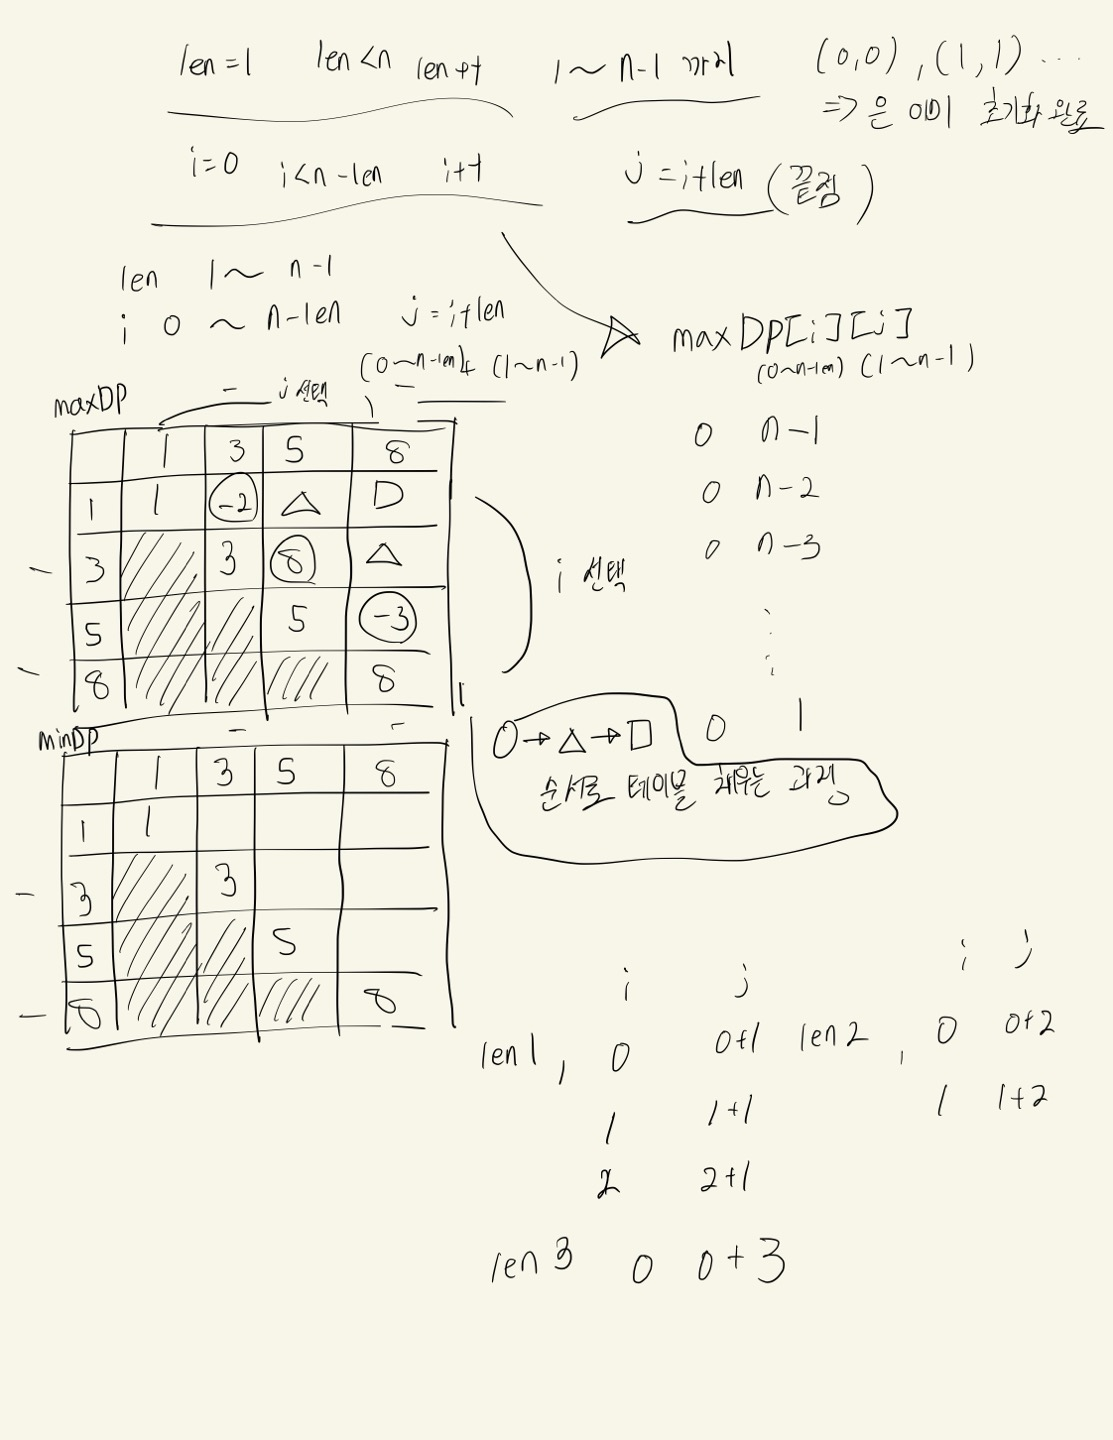 len=1 len<n len++ 1~n-1 까지 (0,0), (1,1) ...
=> 은 이미 초기화 완료
i=0 i<n-len i++ j=i+len (끝점)
len 1~ n-1
i 0 ~ n-len j=i+len
(0~n-len)+ (1~n-1)
maxDP[i][j]
(0~n-len) (1~n-1)
0 n-1
0 n-2
0 n-3
:
0 1
maxDP - j 선택 -
1 3 5 8
1 1 -2 △ □
- 3 3 8 △
5 5 -3
- 8 8
i 선택
O→△→□
순서로 테이블 채우는 과정
minDP - -
1 3 5 8
1 1
- 3 3
5 5
- 8 8
i j
len1, 0 0+1
1 1+1
2 2+1
i j
len2, 0 0+2
1 1+2
len3 0 0+3